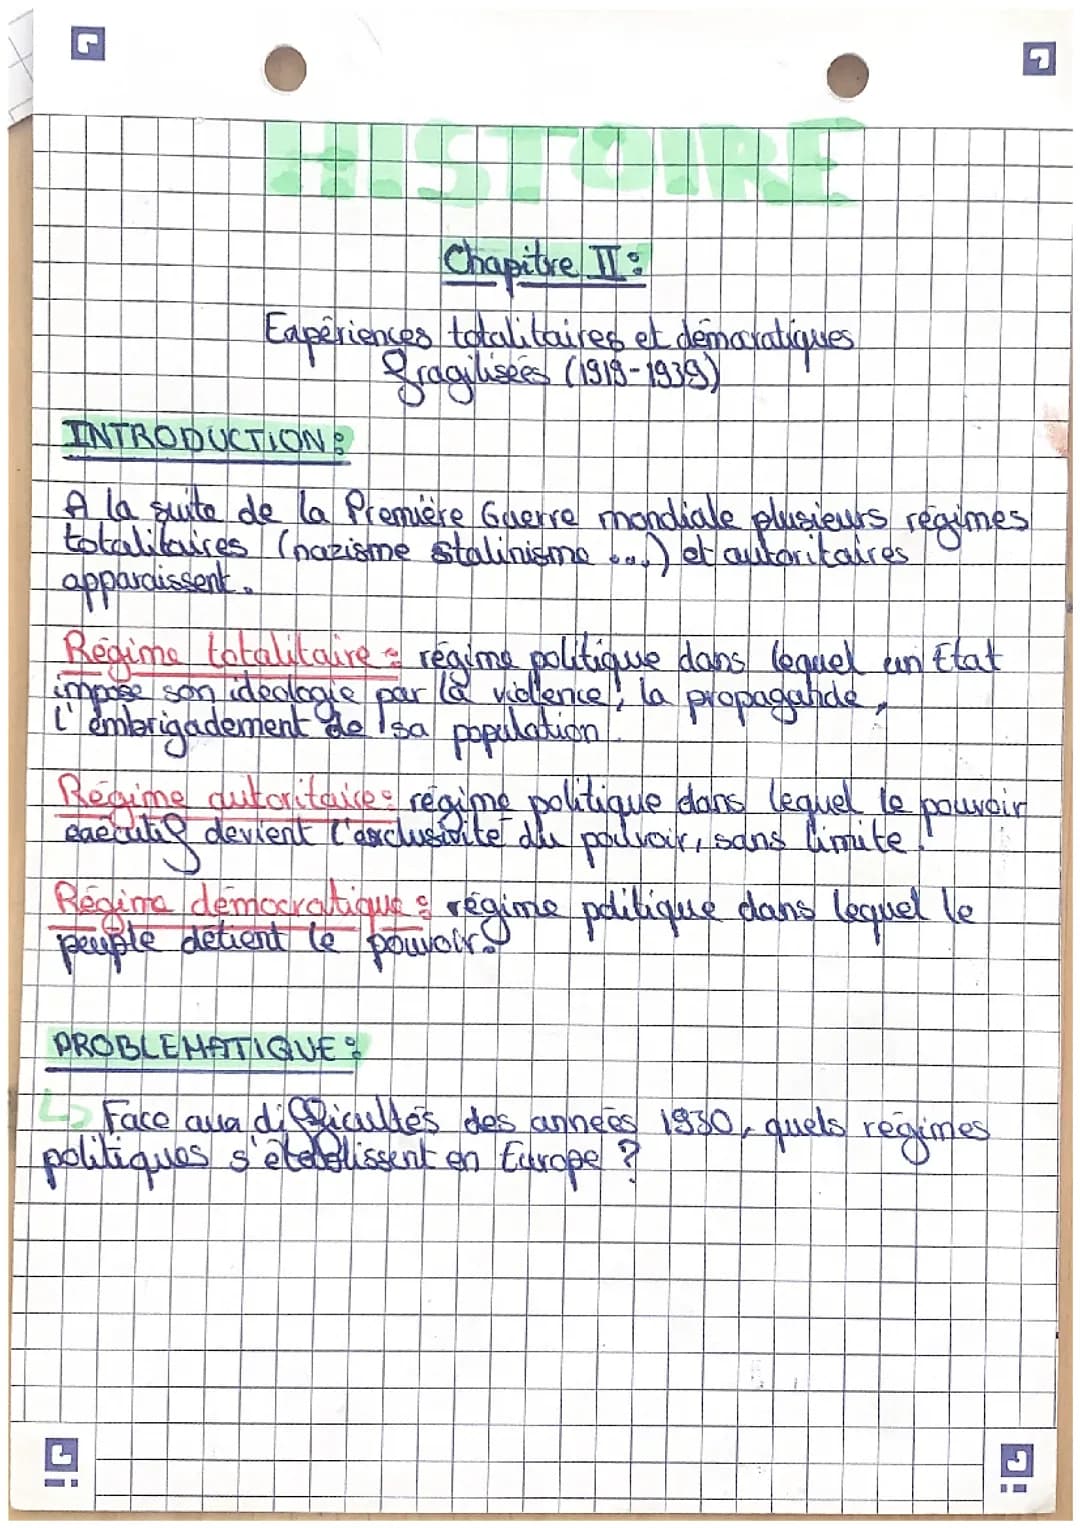 HISTOIRE
Chapitre II :
Expériences totalitaires et démocratiques
fragilisées (1919-1939)
INTRODUCTION :
A la suite de la Première Guerre mondiale plusieurs régimes
totalitaires (nazisme stalinisme ...) et autoritaires
apparaissent.
Régime totalitaire : régime politique dans lequel un Etat
impose son idéologie par la violence, la propagande,
l'embrigadement de sa population.
Régime autoritaire : régime politique dans lequel le pouvoir
exécutif devient l'exclusivité du pouvoir, sans limite.
Régime démocratique : régime politique dans lequel le
peuple détient le pouvoir.
PROBLEMATIQUE :
↳ Face aux difficultés des années 1930, quels régimes
politiques s'établissent en Europe ?